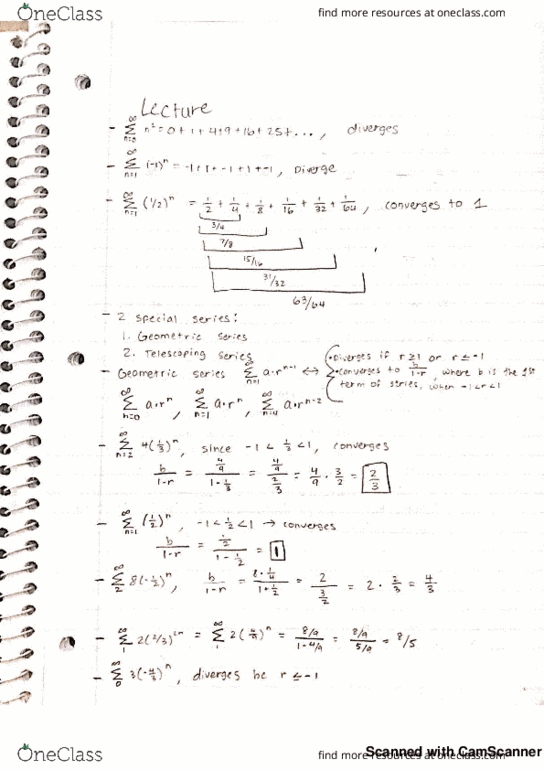 OneClass
find more resources at oneclass.com
Lecture
- ∞∑n=0 n² = 0 + 1 + 4 + 9 + 16 + 25 + ..., diverges
- ∞∑n=1 (-1)ⁿ = -1 + 1 + -1 + 1 + -1, Diverge
- ∞∑n=1 (1/2)ⁿ = 1/2 + 1/4 + 1/8 + 1/16 + 1/32 + 1/64, converges to 1
3/4
7/8
15/16
31/32
63/64
- 2 special series:
1. Geometric series
2. Telescoping series
- Geometric series ∞∑n=1 a·rⁿ⁻¹ ↔
• Diverges if r ≥ 1 or r ≤ -1
• converges to b/1-r, where b is the 1st
term of series, when -1 < r < 1
∞∑n=0 a·rⁿ, ∞∑n=1 a·rⁿ, ∞∑n=4 a·rⁿ⁻²
- ∞∑n=2 4(1/3)ⁿ, since -1 < 1/3 < 1, converges
b/1-r = 4/9/1-1/3 = 4/9/2/3 = 4/9 · 3/2 = 2/3
- ∞∑n=1 (1/2)ⁿ, -1 < 1/2 < 1 → converges
b/1-r = 1/2/1-1/2 = 1
- ∞∑2 8(-1/2)ⁿ, b/1-r = 8·1/4/1+1/2 = 2/3/2 = 2 · 2/3 = 4/3
- ∞∑1 2(2/3)²ⁿ = ∞∑1 2(4/9)ⁿ = 8/9/1-4/9 = 8/9/5/9 = 8/5
- ∞∑0 3(-4/3)ⁿ, diverges bc r ≤ -1
OneClass
find more resources at oneclass.com
Scanned with CamScanner